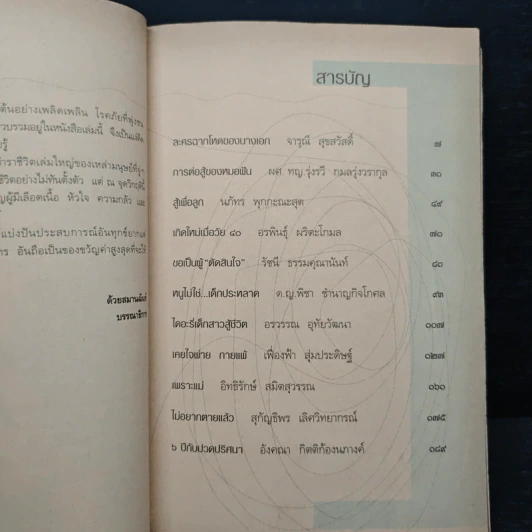 ต้นอย่างเพลิดเพลิน โรคภัยที่พุ่งชน
วบรวมอยู่ในหนังสือเล่มนี้ จึงเป็นแค่สิ่ง
รู้
ตำราชีวิตเล่มใหญ่ของเหล่ามนุษย์ที่
ชีวิตอย่างไม่ทันตั้งตัว แต่ ณ จุดวิกฤติ
ญผู้มีเลือดเนื้อ หัวใจ ความกลัว และ
แบ่งปันประสบการณ์อันทุกข์ยาก
ทร อันถือเป็นของขวัญค่าสูงสุดที่จะให้
ด้วยสมานฉันท์
บรรณาธิการ
สารบัญ
ละครฉากโหดของนางเอก จารุณี สุขสวัสดิ์ ๗
การต่อสู้ของหมอฟัน ผศ.ทญ.รุ่งรวี กมลรุ่งวรากุล ๓๐
สู้เพื่อลูก นภัทร พุกกะณะสุต ๔๙
เกิดใหม่เมื่อวัย ๔๐ อรพินธุ์ ผริตะโกมล ๗๐
ขอเป็นผู้ "ตัดสินใจ" รัชนี ธรรมคุณานันท์ ๘๐
หนูไม่ใช่...เด็กประหลาด ด.ญ.พิชา ชำนาญกิจโกศล ๙๓
ไดอะรี่เด็กสาวสู้ชีวิต อรวรรณ อุทัยวัฒนา ๑๐๗
เคยใจพ่าย กายแพ้ เฟื่องฟ้า สุ่มประดิษฐ์ ๑๒๗
เพราะแม่ อิทธิรักษ์ สมิตสุวรรณ ๑๖๐
ไม่อยากตายแล้ว สุกัญธิพร เลิศวิทยากรณ์ ๑๗๕
๖ ปีกับปวดปริศนา อังคณา กิตติก้องนภางค์ ๑๘๙